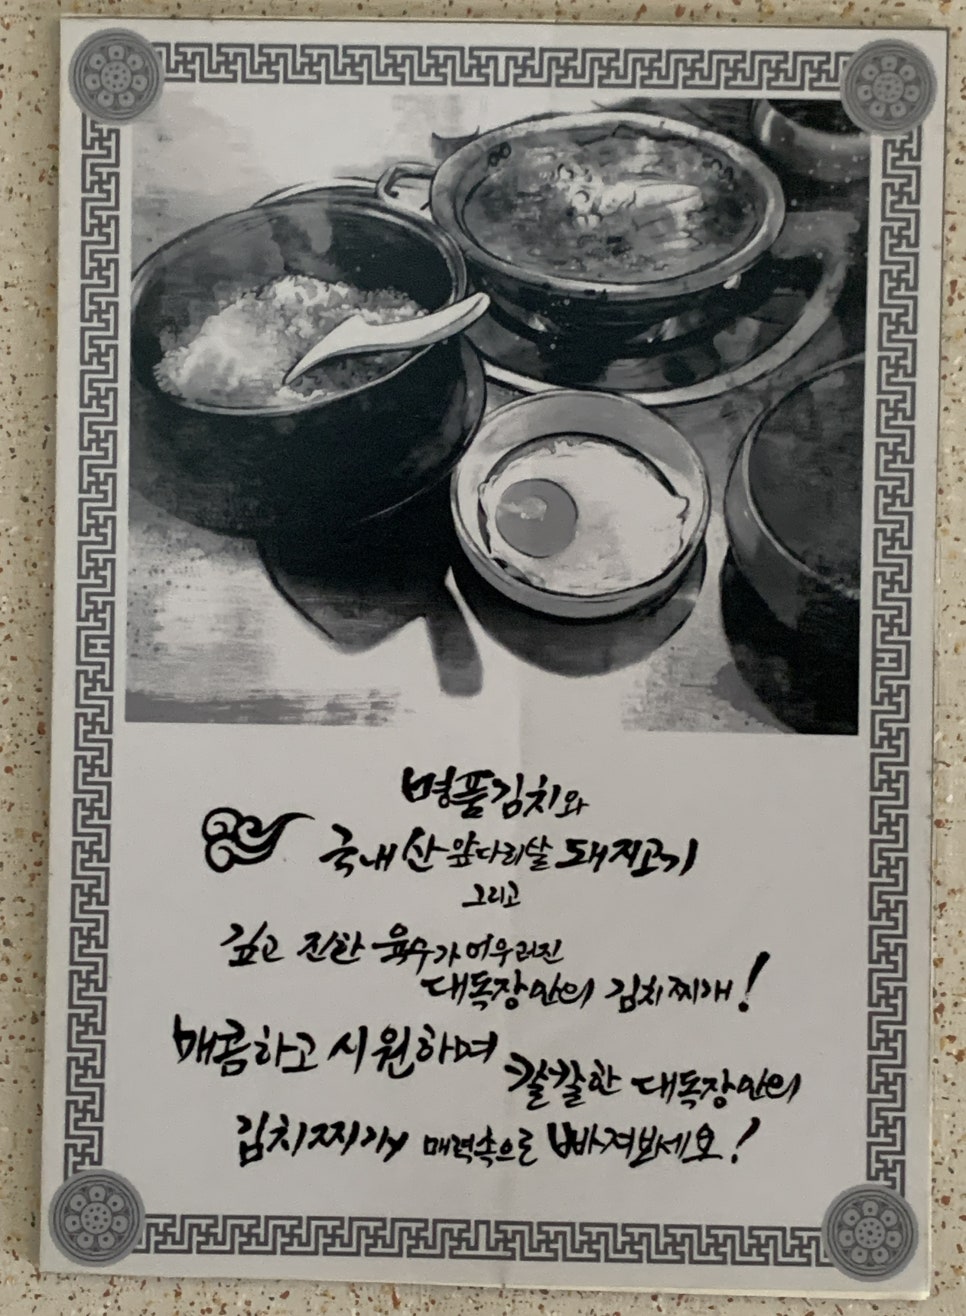 명품김치와
국내산 앞다리살 돼지고기
그리고
깊고 진한 육수가 어우러진
대독장만의 김치찌개!
매콤하고 시원하며
칼칼한 대독장만의
김치찌개 매력속으로 빠져보세요!